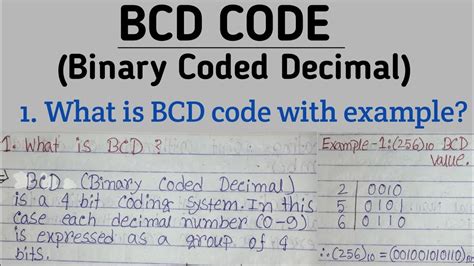 BCD CODE
(Binary Coded Decimal)
1. What is BCD code with example?
1. What is BCD ?
BCD (Binary Coded Decimal)
is a 4 bit coding system. In this
case each decimal number (0-9)
is expressed as a group of 4
bits.
Example-1:(256)10 BCD
value.
2 0010
5 0101
6 0110
∴(256)10 = (001001010110)